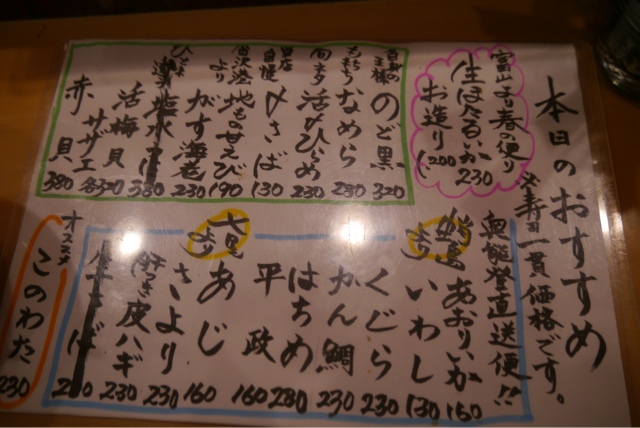 本日のおすすめ
※寿司一貫価格です。
富山より春の便り
生ほたるいか 230
お造り 1200
白身の王様 のど黒 320
もちもち なめら 280
肉厚 活〆ひらめ 230
当店自慢 〆さば 130
金沢港より 地もの甘えび 190
がす海老 230
塩水うに 380
活梅貝
サザエ 各320
赤貝 380
奥能登直送便!!
あおりいか 160
いわし 130
くじら 230
かん鯛 230
はちめ 280
平政 160
七尾より
あじ 160
さより 230
肝つき皮ハギ 230
オススメ
このわた 230